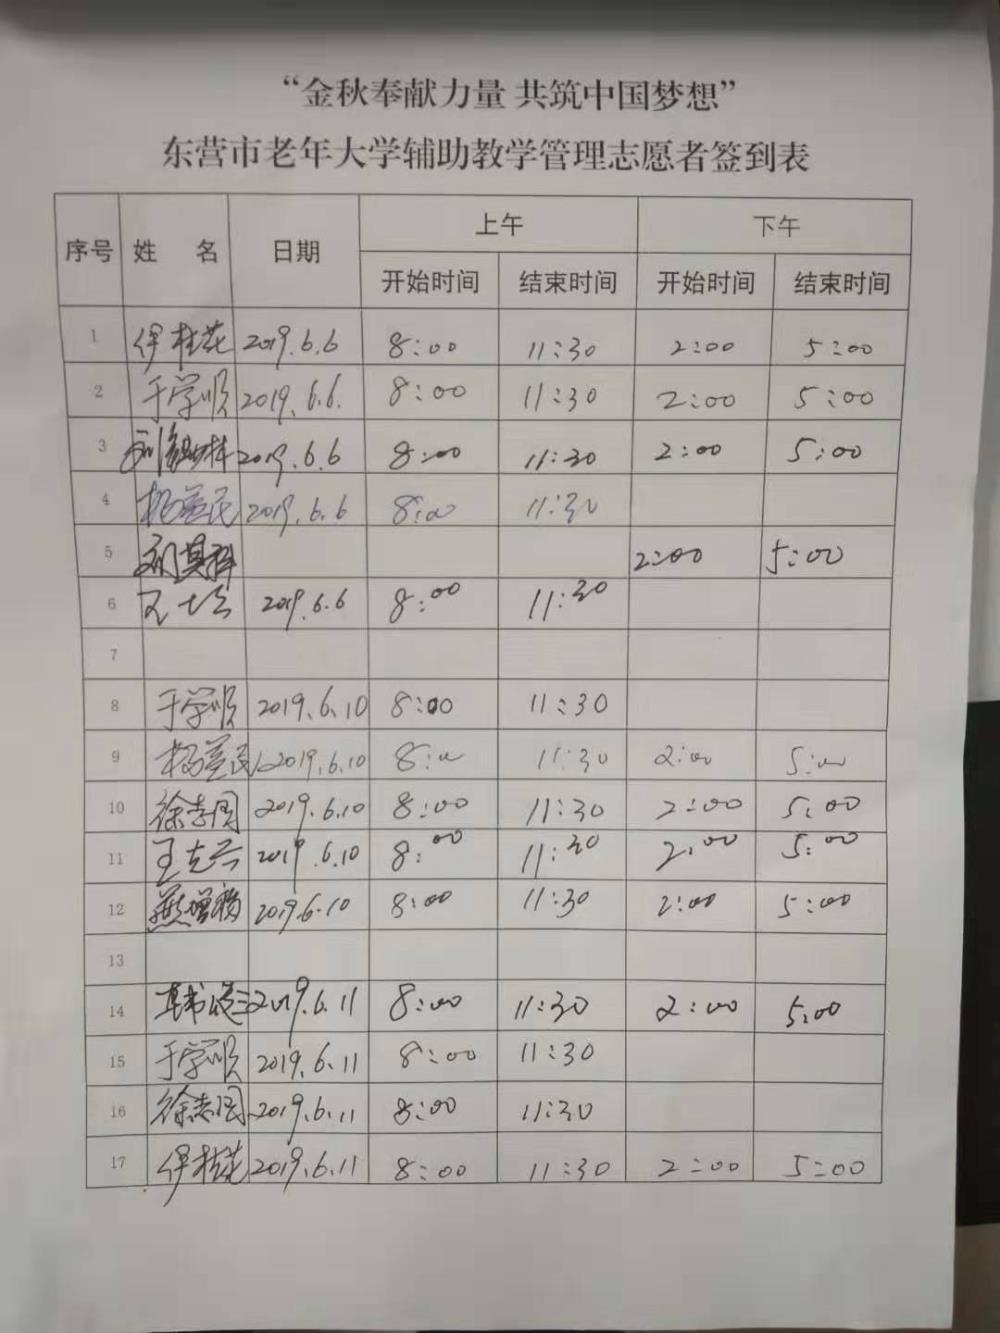 “金秋奉献力量 共筑中国梦想”
东营市老年大学辅助教学管理志愿者签到表
序号 姓 名 日期 上午 下午
开始时间 结束时间 开始时间 结束时间
1 伊桂花 2019.6.6 8:00 11:30 2:00 5:00
2 于学顺 2019.6.6. 8:00 11:30 2:00 5:00
3 2019.6.6 8:00 11:30 2:00 5:00
4 杨益民 2019.6.6 8:00 11:30
5 刘其科 2:00 5:00
6 2019.6.6 8:00 11:30
7
8 于学顺 2019.6.10 8:00 11:30
9 杨益民 2019.6.10 8:00 11:30 2:00 5:00
10 徐志国 2019.6.10 8:00 11:30 2:00 5:00
11 王克兴 2019.6.10 8:00 11:30 2:00 5:00
12 燕增福 2019.6.10 8:00 11:30 2:00 5:00
13
14 2019.6.11 8:00 11:30 2:00 5:00
15 于学顺 2019.6.11 8:00 11:30
16 徐志国 2019.6.11 8:00 11:30
17 伊桂花 2019.6.11 8:00 11:30 2:00 5:00